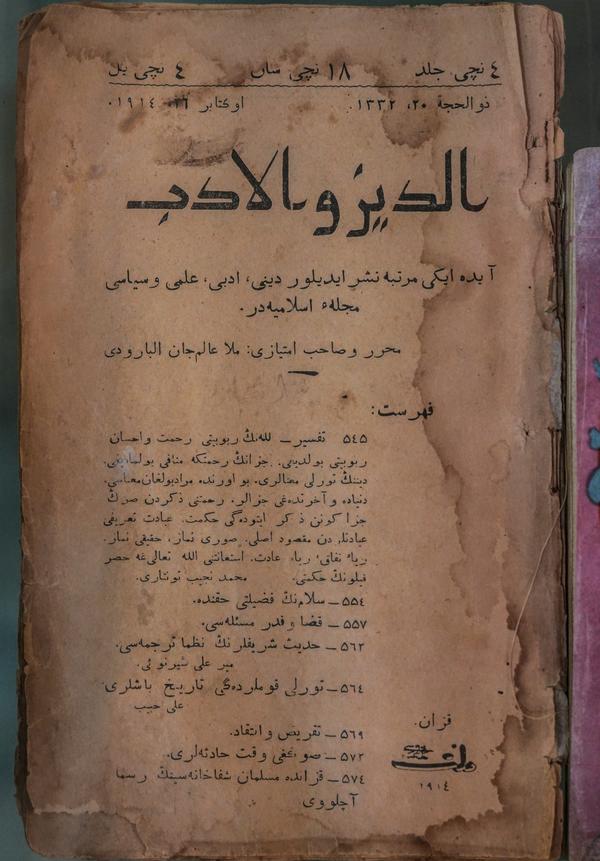 ٤ نچی جلد ١٨ نچی سان ٤ نچی یل
ذوالحجة ٢٠، ١٣٣٢. اوكتابر ٢٦، ١٩١٤.
الدین والادب
آیده ایكی مرتبه نشر ایدیلور دینی، ادبی، علمی و سیاسی
مجلهء اسلامیه در.
محرر و صاحب امتیازی: ملا عالمجان البارودی
فهرست:
٥٤٥ تفسیر — اللهنڭ ربوبیتی رحمت واحسان
ربوبیتی بولدیغی. جزانڭ رحمتكه منافی بولمادیغی.
دیننڭ تورلی معنالری. بو اورنده مرادبولغان معناسی.
دنیاده و آخرتده‌غی جزالر. رحمتنی ذكردن صوڭ
جزا كونن ذكر ایتوده‌گی حكمت. عبادت تعریفی
عبادتلردن مقصود اصلی. صوری نماز، حقیقی نماز.
ریاء نفاق، ریاء عادت. استعانتنی الله تعالی‌غه حصر
قیلونڭ حكمتی. محمد نجیب تونتاری.
٥٥٤ — سلام‌نڭ فضیلتی حقنده.
٥٥٧ — قضا و قدر مسئله‌سی.
٥٦٢ — حدیث شریفلرنڭ نظما ترجمه‌سی.
میر علی شیر نوائی.
٥٦٤ — تورلی قوملرده‌گی تاریخ باشلری
علی حبیب
٥٦٩ — تقریض و انتقاد.
٥٧٢ — صوڭغی وقت حادثه‌لری.
٥٧٤ — قزانده مسلمان شفاخانه‌سینڭ رسما
آچلووی
قزان.
١٩١٤